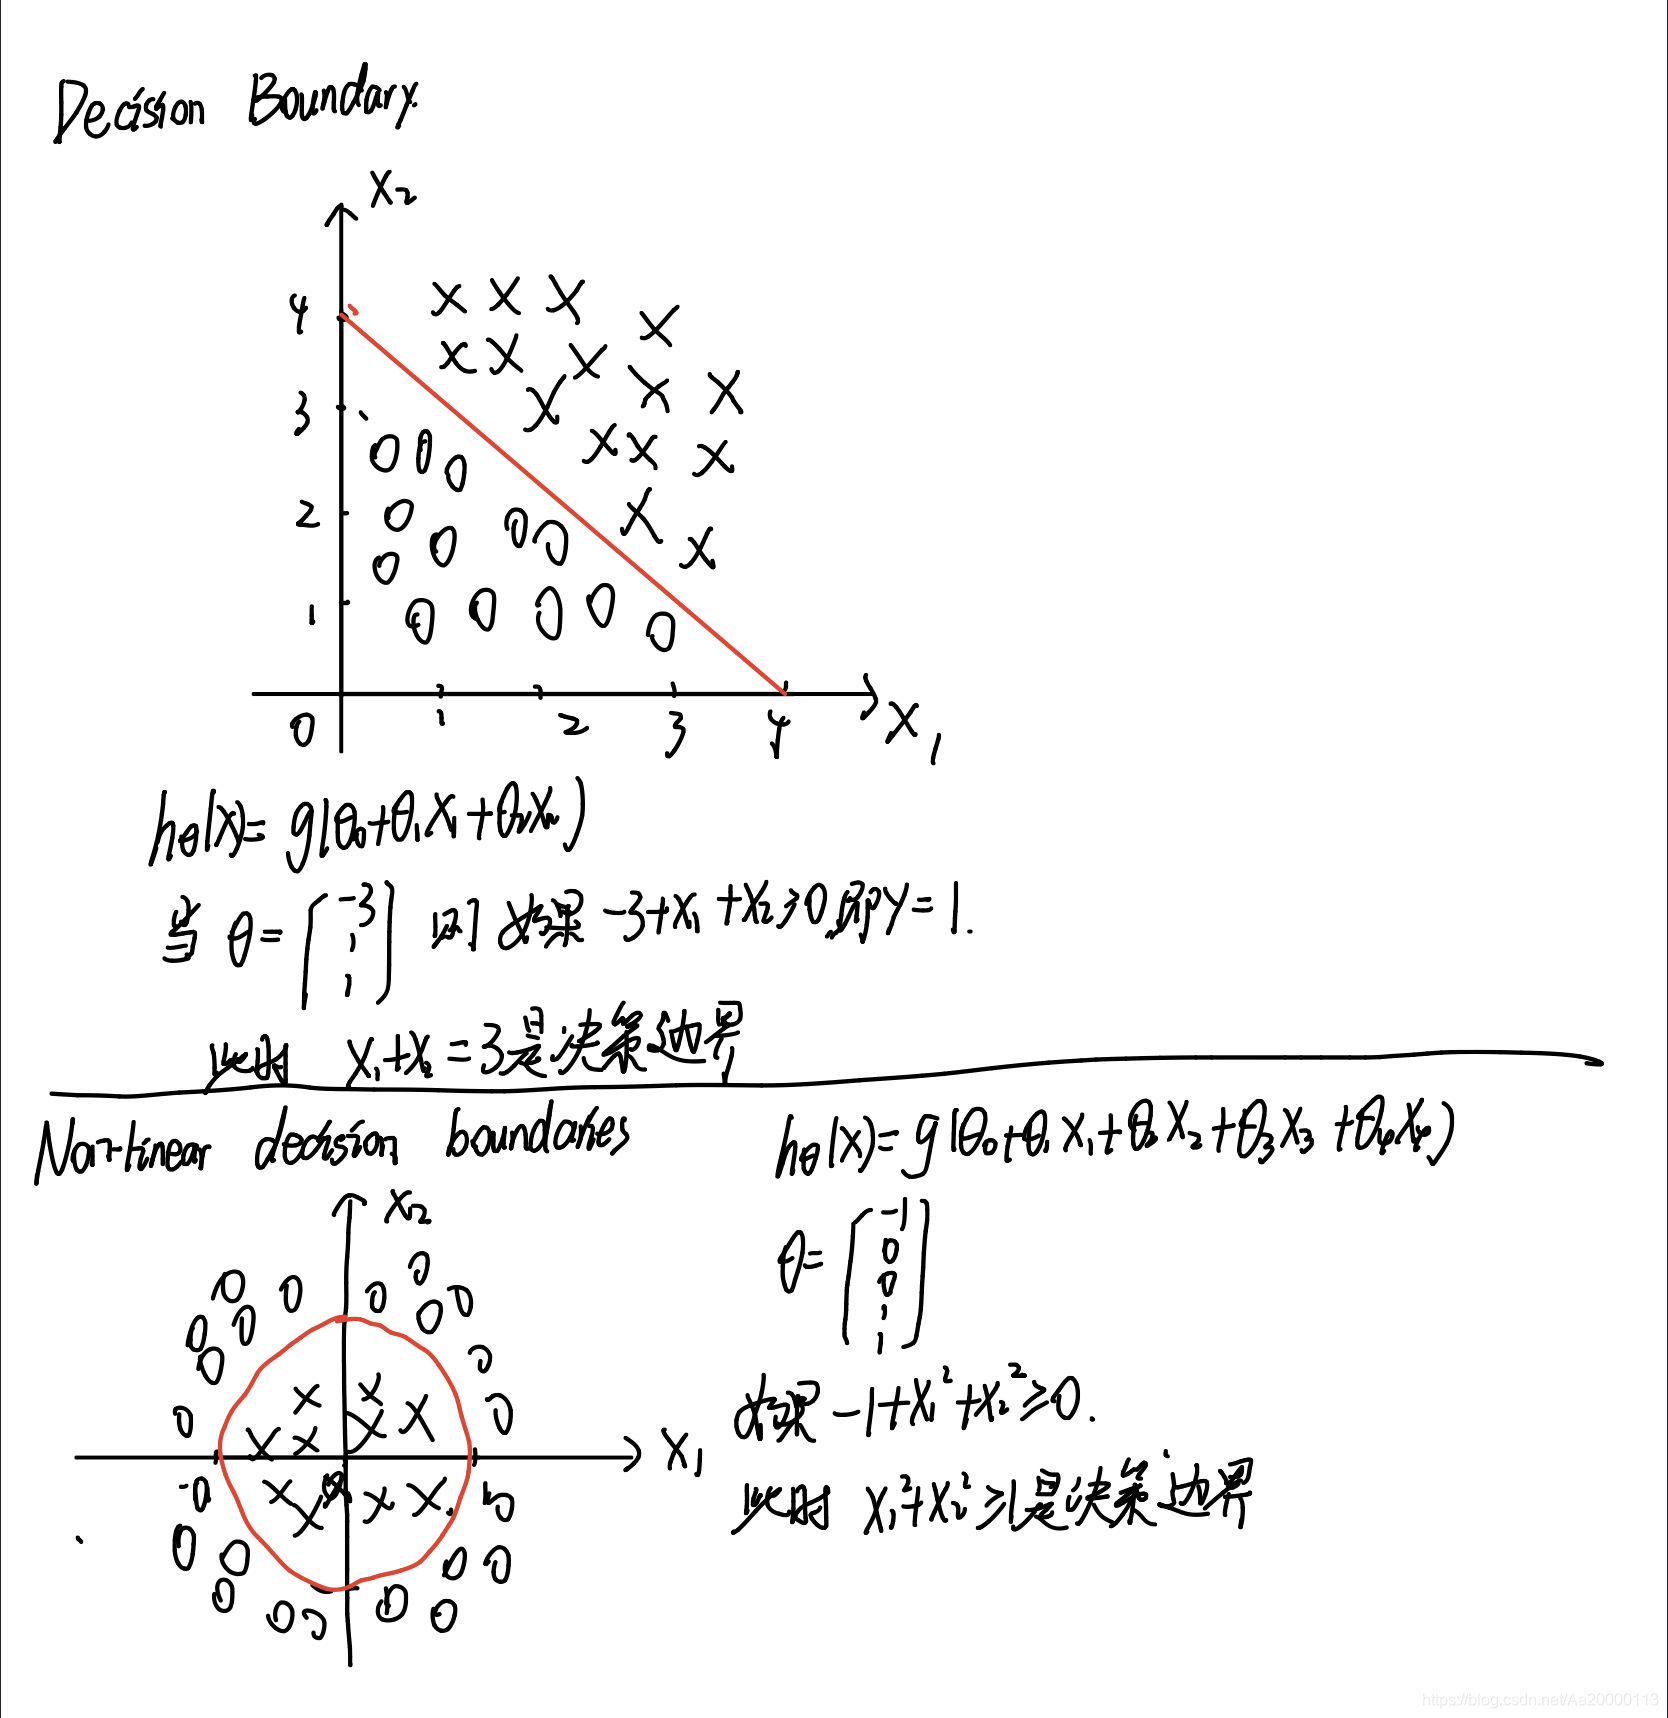 Decision Boundary
X₂
4
3
2
1
0 1 2 3 4 X₁
hθ(x)= g(θ₀+θ₁X₁+θ₂X₂)
当 θ= [-3 1 1] 时 如果 -3+X₁+X₂≥0,即y=1.
此时 X₁+X₂=3是决策边界
Non-linear decision boundaries
X₂
X₁
hθ(x)= g(θ₀+θ₁X₁+θ₂X₂+θ₃X₃+θ₄X₄)
θ= [-1 0 0 1 1]
如果 -1+X₁²+X₂²≥0.
此时 X₁²+X₂²≥1是决策边界
https://blog.csdn.net/Aa20000113